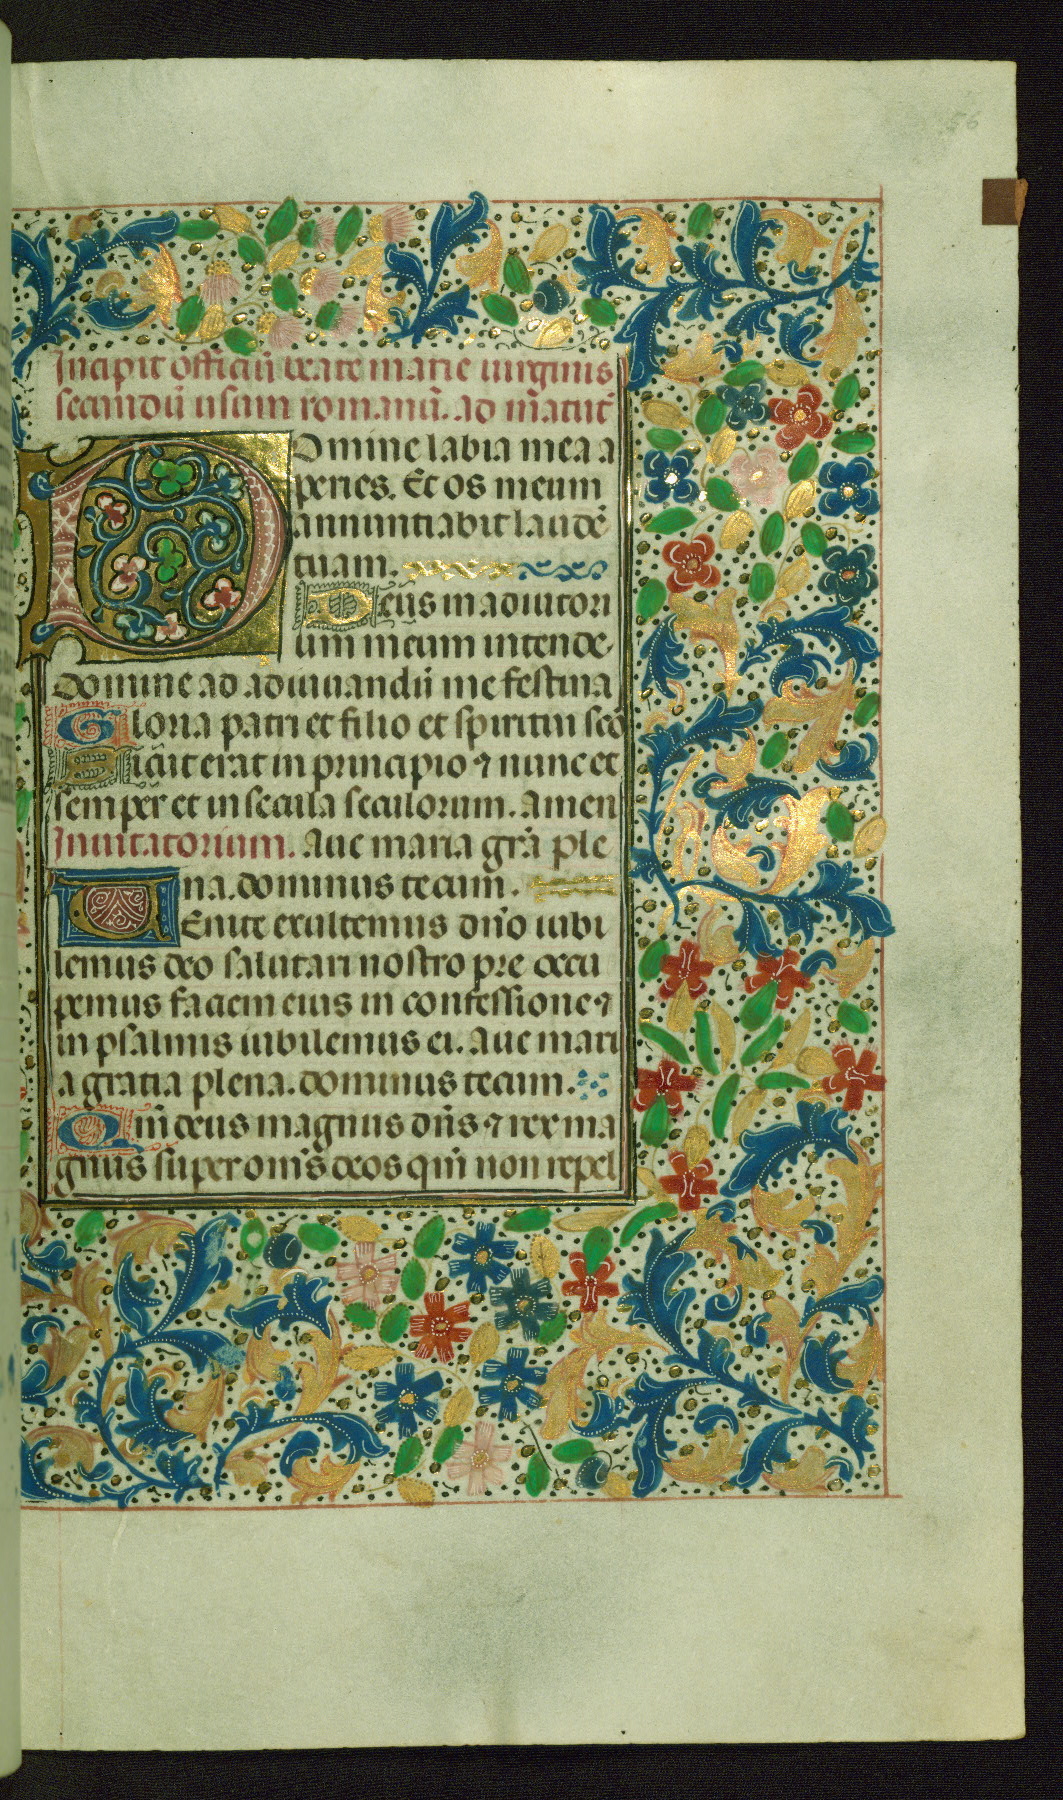 56
Incipit officiū beate marie uirginis
secundū usum romanū. ad matut̄
Domine labia mea a
peries. Et os meum
annuntiabit laudē
tuam.
Deus in adiutori
um meum intende.
Domine ad adiuuandū me festina
Gloria patri et filio et spiritui sc̄o
Sicut erat in principio ⁊ nunc et
semper et in secula seculorum. amen
Inuitatorium. Aue maria grā ple
na. dominus tecum.
Uenite exultemus dn̄o iubi
lemus deo salutari nostro pre occu
pemus faciem eius in confessione ⁊
in psalmis iubilemus ei. Aue mari
a gratia plena. dominus tecum.
Qm̄ deus magnus dn̄s ⁊ rex ma
gnus super om̄s deos qm̄ non repel